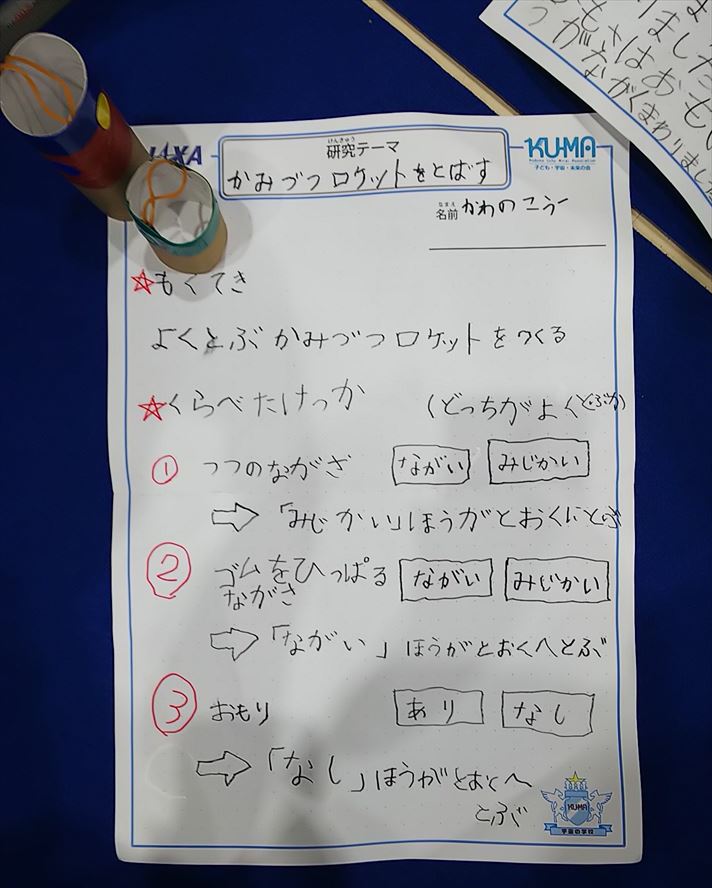 りました
もさはおも
つがな
ながくまわりました
JAXA
KUMA
子ども・宇宙・未来の会
けんきゅう
研究テーマ
かみづつロケットをとばす
なまえ
名前 かわの こう
☆もくてき
よくとぶ かみづつロケットをつくる
☆くらべたけっか (どっちがよくとぶか)
① つつのながさ ながい みじかい
⇨「みじかい」ほうがとおくにとぶ
② ゴムをひっぱる ながい みじかい
ながさ
⇨「ながい」ほうがとおくへとぶ
③ おもり あり なし
⇨「なし」ほうがとおくへ
とぶ
KUMA
宇宙の学校